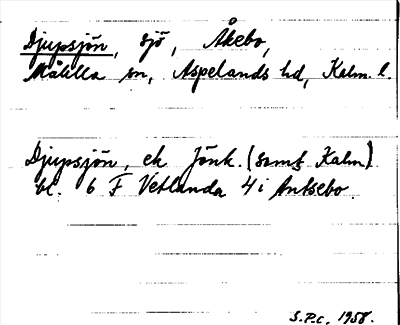 Djupsjön, sjö, Åkebo,
Målilla sn, Aspelands hd, Kalm. l.
Djupsjön, ek Jönk. (samt Kalm)
bl. 6 F Vetlanda 4 i Antsebo.
S.P.c. 1958.